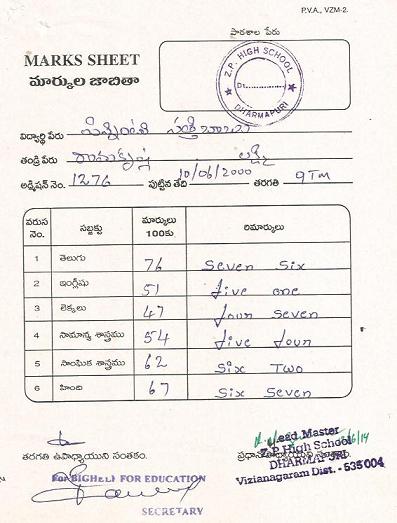 P.V.A., VZM-2.
పాఠశాల పేరు
MARKS SHEET
మార్కుల జాబితా
Z.P. HIGH SCHOOL
Dt.
DHARMAPURI
విద్యార్థి పేరు
తండ్రి పేరు రామకృష్ణ లక్ష్మి
అడ్మిషన్ నెం. 1276 పుట్టిన తేది 10/06/2000 తరగతి 9TH
వరుస నెం. సబ్జక్టు మార్కులు 100కు రిమార్కులు
1 తెలుగు 76 Seven Six
2 ఇంగ్లీషు 51 five one
3 లెక్కలు 47 four Seven
4 సామాన్య శాస్త్రము 54 five four
5 సాంఘిక శాస్త్రము 62 Six Two
6 హింది 67 Six Seven
తరగతి ఉపాధ్యాయుని సంతకం.
Head Master
Z.P. High School
DHARMAPURI
Vizianagaram Dist. - 535004
For BIGHELI FOR EDUCATION
SECRETARY